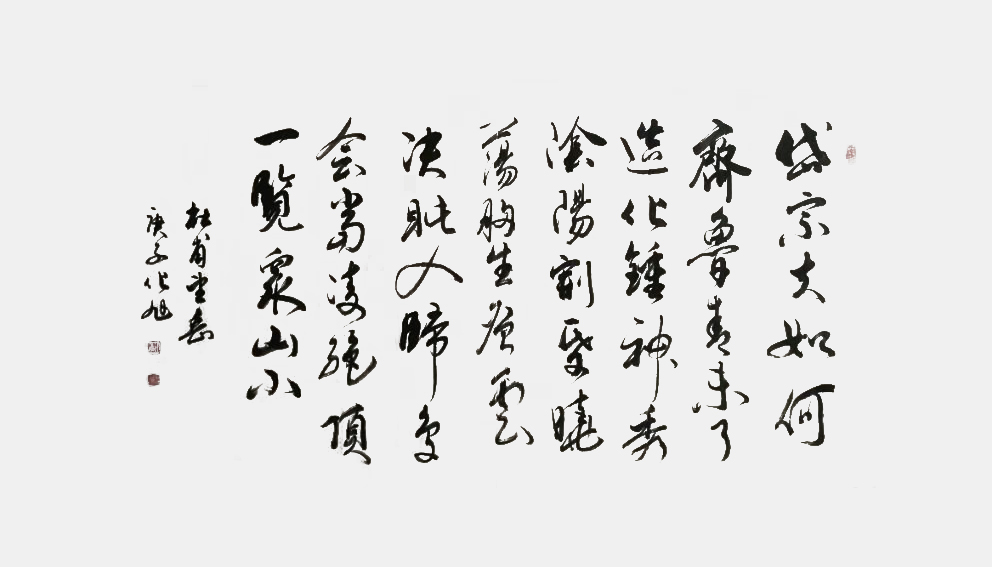 岱宗夫如何
齊魯青未了
造化鍾神秀
陰陽割昏曉
蕩胸生層雲
決眦入歸鳥
会當凌絕頂
一覽眾山小
杜甫望岳
庚子化旭